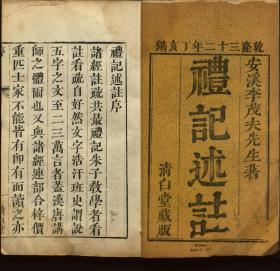 乾隆三十二年丁亥鐫
安溪李茂夫先生著
禮記述註
清白堂藏版
禮記述註序
諸經註疏共最禮記朱子教學者看
註看疏自好然文字浩汗班史謂説
五字之文至二三萬言者董漢唐講
師之體爾也又與諸經連部合梓價
重匹士家不能皆有即有而涵之亦